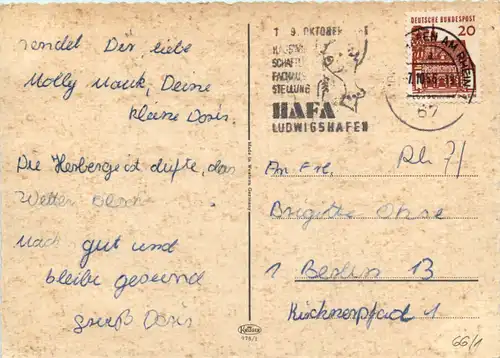 sendet Dir liebe
Molly Mauk, Deine
kleine Doris.
Die Herberge ist dufte, das
Wetter
Mach gut und
bleibe gesund
Gruß Doris
Made in Western Germany
Krüger
1 9. OKTOBER
HAUSWI
SCHAFT
FACHAUS
STELLUNG
HAFA
LUDWIGSHAFEN
DEUTSCHE BUNDESPOST
20
EN AM RHEIN
67
Rh 71
An Frl.
Brigitte
1 Berlin 13
Kirchnerpfad 1
66/1